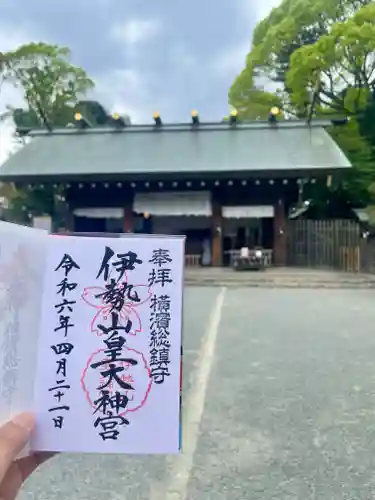 奉拝 横濱総鎮守
伊勢山皇大神宮
令和六年四月二十一日